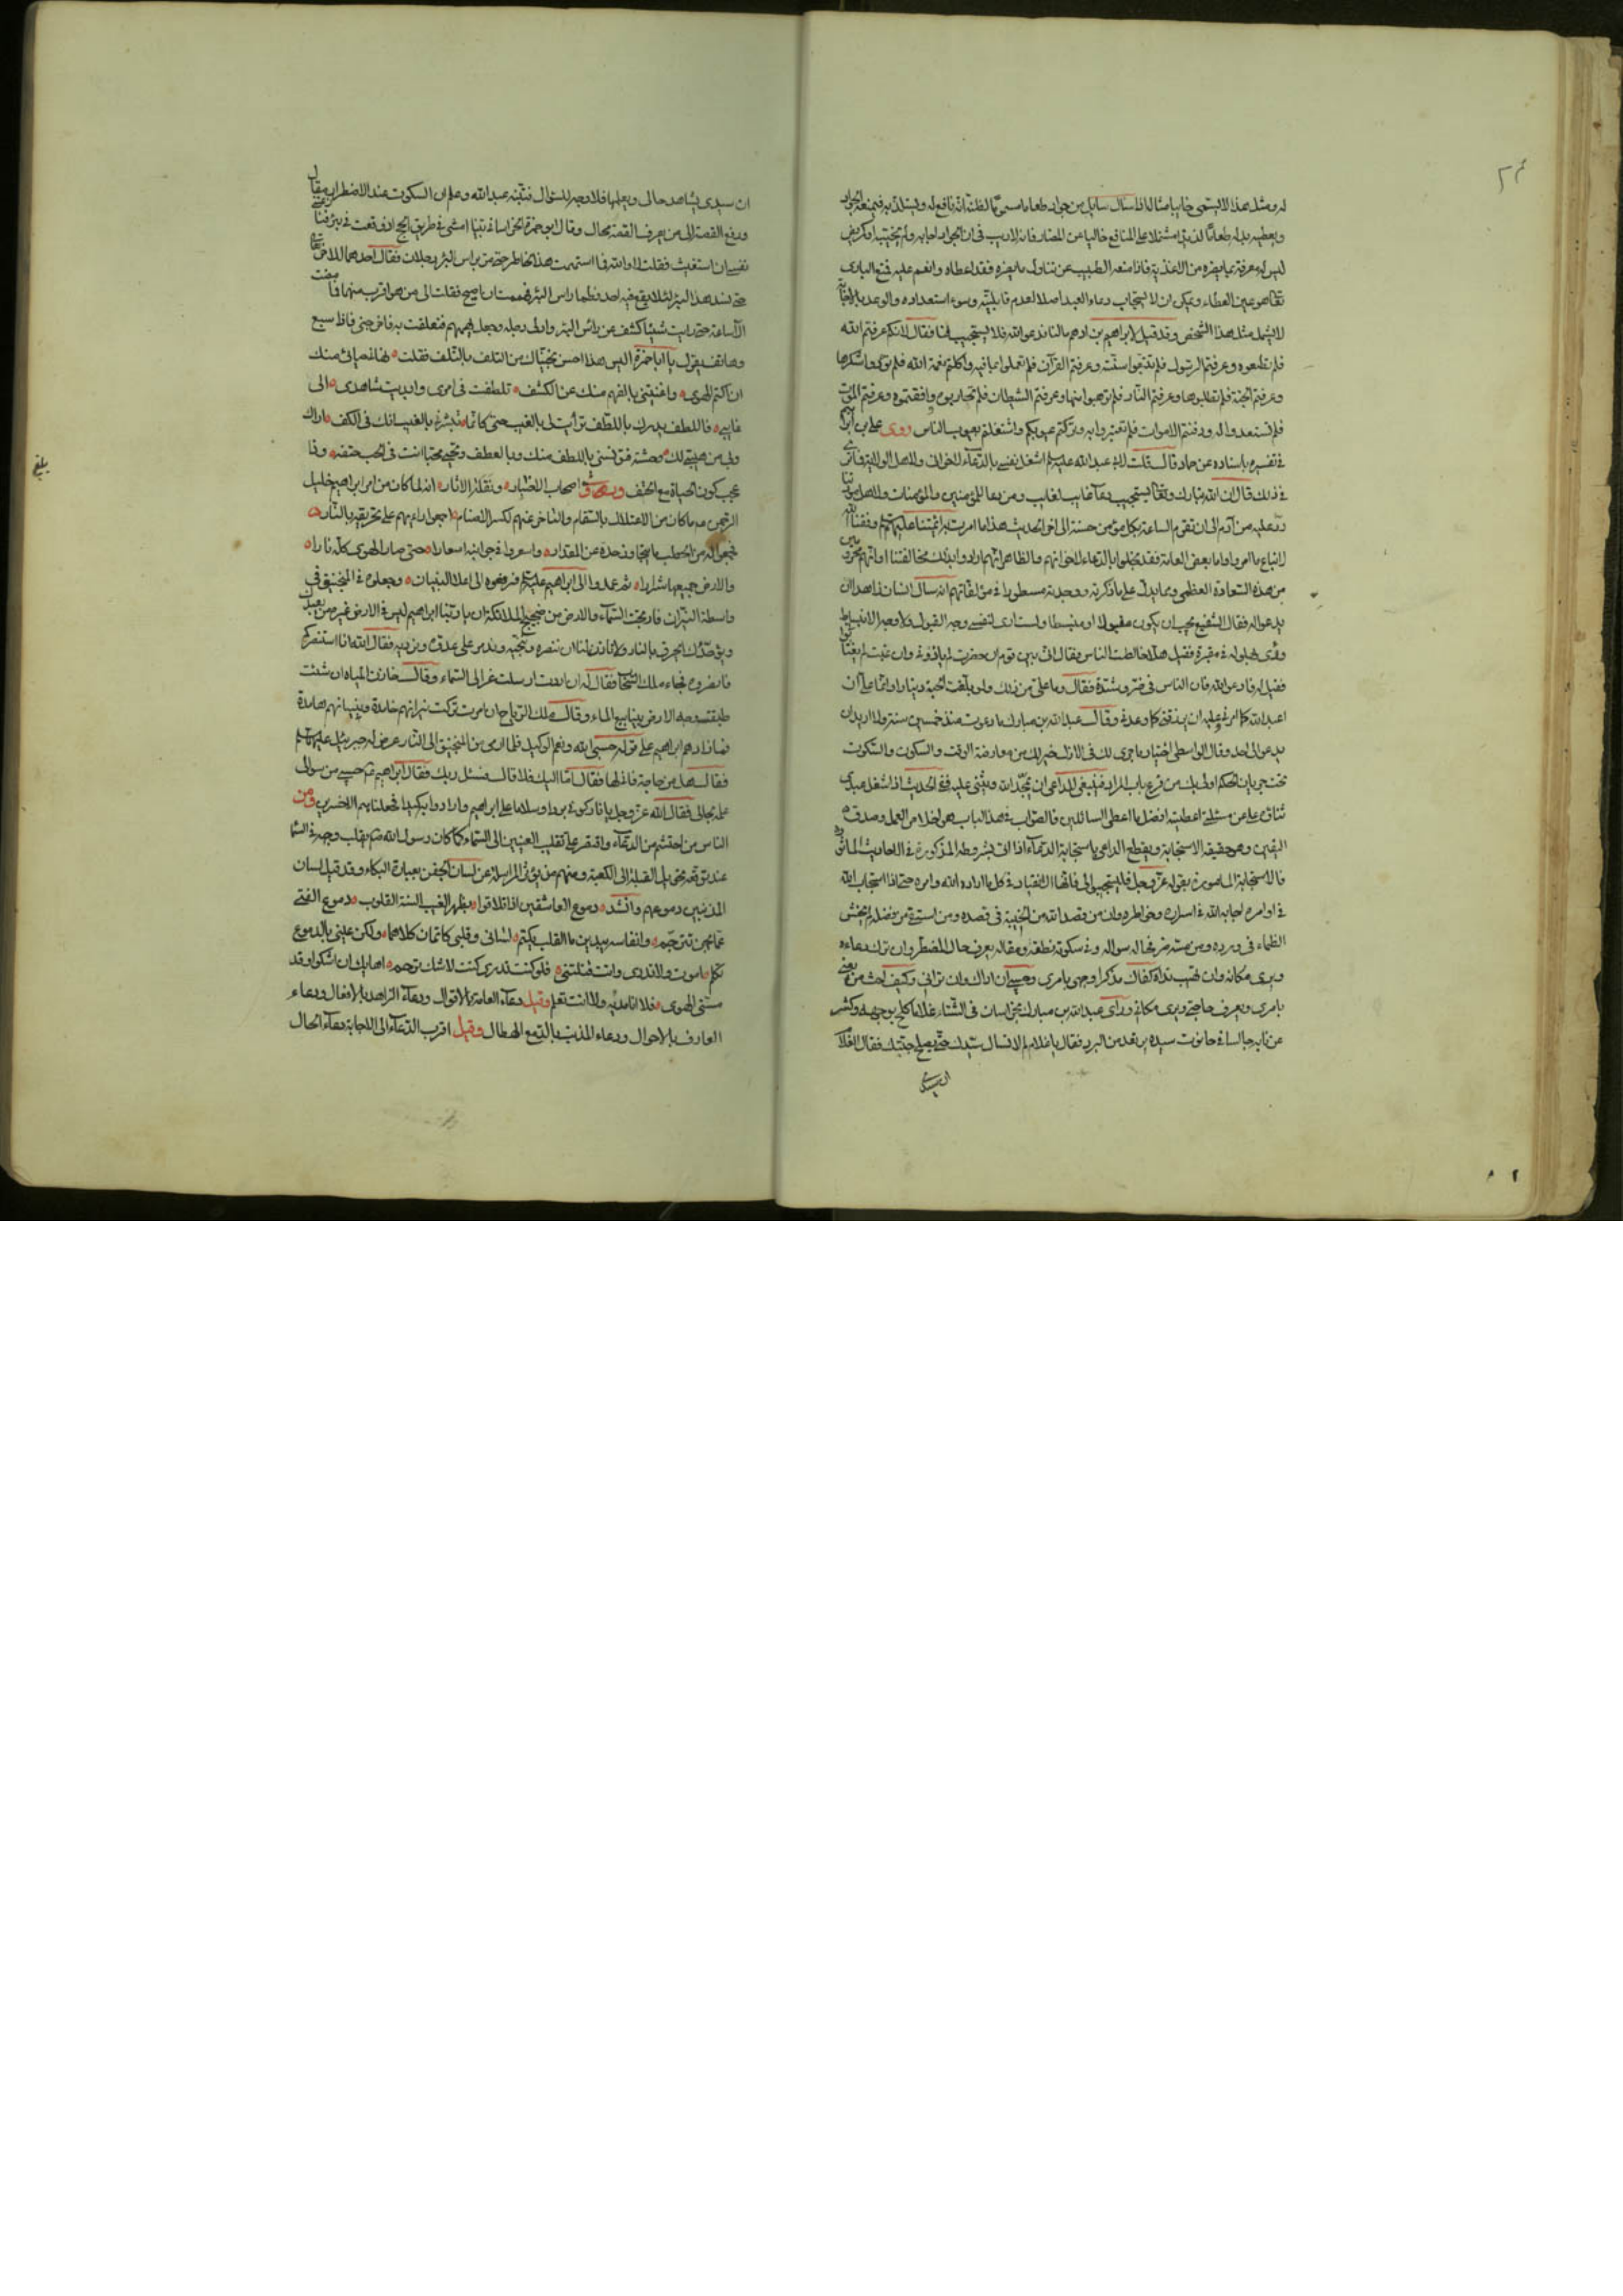 له ومثل هذا لا يسمى خايبا مثاله اذا سال سايل من جواد طعاما مسموما لظنه انه نافع له ويستلذ به فيمنعه الجواد
ويعطيه بدله طعاما لذيذا مشتملا على المنافع خاليا عن المضار فانه لا ريب في ان الجواد اجابه ولم يخيبه اذ كريض
ليس له معرفة بما يضره من الاغذية فاذا منعه الطبيب عن تناول ما يضره فقد اعطاه وانعم عليه فمنع البارى
تعالى هو عين العطاء ويمكن ان لا يستجاب دعاء العبد اصلا لعدم قابليته وسوء استعداده والوعد بالاجابة
لا يشمل مثل هذا الشخص وقد قيل لابراهيم بن ادهم ما لنا ندعو الله فلا يستجيب لنا فقال لانكم عرفتم الله
فلم تطيعوه وعرفتم الرسول فلم تتبعوا سنته وعرفتم القرآن فلم تعملوا بما فيه واكلتم نعمة الله فلم تؤدوا شكرها
وعرفتم الجنة فلم تطلبوها وعرفتم النار فلم ترهبوا منها وعرفتم الشيطان فلم تحاربوه ووافقتموه وعرفتم الموت
فلم تستعدوا له ودفنتم الاموات فلم تعتبروا به وتركتم عيوبكم واشتغلتم بعيوب الناس روى على بن ابراهيم
في تفسيره باسناده عن حماد قال قلت لابى عبد الله عليه السلم اشغل نفسى بالدعاء لاخوانى ولاهل الولاية فما ترى
في ذلك قال ان الله تبارك وتعالى يستجيب دعاء غايب لغايب ومن دعا للمؤمنين والمؤمنات ولاهل مودتنا
رد عليه من آدم الى ان تقوم الساعة بكل مؤمن حسنة الى اخر الحديث هذا ما امرت به ائمتنا عليهم السلم وفقنا الله
لاتباع ما امروا واما بعض العامة فقد بخلوا بالدعاء لاخوانهم والظاهر انهم ارادوا بذلك مخالفتنا او انهم محرومين
من هذه السعادة العظمى ومما يدل على ما ذكرته ووجدته مسطورا في مؤلفاتهم انه سال انسان زاهدا ان
يدعو له فقال الشفيع يجب ان يكون مقبولا او منبسطا ولست ارى لنفسى وجه القبول ولا وجه الانبساط
ورؤى بهلول في مقبرة فقيل هلا خالطت الناس فقال انى بين قوم ان حضرت لم ياذونى وان غبت لم يغتابونى
فقيل له فادعو الله فان الناس في ضر وشدة فقال وما على من ذلك ولو بلغت الحبة دينارا وانما على ان
اعبد الله كما امرنى وعليه ان يرزقنى كما وعدنى وقال عبد الله بن مبارك ما دعوت منذ خمسين سنة ولا اريد ان
يدعو لى احد وقال الواسطى اختيار ما جرى لك في الازل خير لك من معارضة الوقت والسكوت والسكون
تحت جريان الحكم اولى بك من قرع باب المراد فينبغى للداعى ان يمجد الله ويثنى عليه ففى الحديث اذا شغل عبدى
ثنائى عن مسئلتى اعطيته افضل ما اعطى السائلين فالصواب في هذا الباب هو اخلاص العمل وصدق
اليقين وهو حقيقة الاستجابة ويقطع الداعى باستجابة الدعاء اذا اتى بشروطه المذكورة في الاحاديث الماثورة
فالاستجابة المامور بها بقوله عز وجل فليستجيبوا لى فانها الانقياد في كل ما اراده الله وامره حتى اذا استجاب الله
في اوامره اجابه الله في اسراره وخواطره وان من قصد الله من الخيبة في قصده ومن استسقى من فضله لم يخش
الظماء في ورده ومن مسه ضر فحاله سواله وفي سكوته نطقه ومقاله يعرف حال المضطر وان ترك دعاءه
ويرى مكانه وان غيب نداه كفاك مذكرا وجهى بامرى وحسبى ان اراك وان ترانى وكيف احث من يعنى
بامرى ويعرف حاجتى ويرى مكانى ورآى عبد الله بن مبارك بخراسان في الشتاء غلاما كلح بوجهه وكشر
عن نابه جالسا في حانوت سيده يرتعد من البرد فقال يا غلام لم لا تسال سيدك حتى يصلح جبتك فقال الغلام
ان سيدى يشاهد حالى ويعلمها فلا وجه للسؤال فتنبه عبد الله وعلم ان السكوت عند الاضطرار مقال
ورفع القصة الى من يعرف القصة محال وقال ابو حمزة الخراسانى بينا امشى في طريق الحج اذ وقعت في بئر فنازعتنى
نفسى ان استغيث فقلت لا والله فما استتمت هذا الخاطر حتى مر براس البئر رجلان فقال احدهما للاخر تعال
حتى نسد هذا البئر لئلا يقع فيه احد فطما راس البئر فهممت ان اصيح فقلت الى من هو اقرب منهما فما مضت
الا ساعة حتى رايت شيئا كشف عن راس البئر وادلى رجله وجعل يهمهم فتعلقت به فاخرجنى فاذا سبع
وهاتف يقول يا ابا حمزة اليس هذا احسن نجيناك من التلف بالتلف فقلت نهانى حيائى منك
ان اكتم الهوى واغنيتنى بالفهم منك عن الكشف تلطفت في امرى وابديت شاهدى الى
غايبى فاللطف يدرك باللطف ترأيت لى بالغيب حتى كانما تبشرنى بالغيب انك في الكف اراك
وبى من هيبتى لك وحشة فتؤنسنى باللطف منك وبالعطف وتحيى محبا انت في الحب حتفه وذا
عجب كون الحياة مع الحتف وروى اصحاب الاخبار ونقلة الاثار انه لما كان من امر ابراهيم خليل
الرحمن ما كان من الاعتلال بالسقام والتاخر عنهم لكسر الاصنام اجمع راءيهم على تحريقه بالنار
فجمعوا له من الحطب ما يتجاوز حده عن المقدار واسعروا في جوانبه اسعارا حتى صار الهوى كله نارا
والارض جميعها شرارا ثم عمدوا الى ابراهيم عليه السلم فرفعوه الى اعلا البنيان وجعلوه في المنجنيق في
واسطة النيران فارتجت السماء والارض من ضجيج الملائكة ان يا ربنا ابراهيم ليس في الارض غيره من يعبدك
ويوحدك يحرق بالنار ولا تاذن لنا ان ننصره وننجيه وندمر على عدوه ونرديه فقال الله ان استنصركم
فانصروه فجاء ملك السحاب فقال له ان اردت ارسلت غزالى السماء وقال خازن المياه ان شئت
طبقت وجه الارض بينابيع الماء وقال ملك الرياح ان امرت تركت نيرانهم خامدة وبنيانهم هامدة
فما زادهم ابراهيم على قوله حسبى الله ونعم الوكيل فلما ارمى من المنجنيق الى النار عرض له جبرئيل عليه السلم
فقال هل من حاجة فاذلها فقال اما اليك فلا قال فسئل ربك فقال ابراهيم حسبى من سوالى
علمه بحالى فقال الله عز وجل يا نار كونى بردا وسلاما على ابراهيم وارادوا به كيدا فجعلناهم الاخسرين ومن
الناس من احتشم من الدعاء واقتصر على تقليب العينين الى السماء كما كان رسول الله ص يقلب وجهه في السماء
عند توقعه تحويل القبلة الى الكعبة ومنهم من يؤتى المراسلة عن لسان الجفن بعبارة البكاء وقد قيل لسان
المذنبين دموعهم وانشد دموع العاشقين اذا تلاقوا بظهر الغيب السنة القلوب دموع الفتى
عما يجن تترجم وانفاسه يبدين ما القلب يكتم لسانى وقلبى كاتمان كلاهما ولكن عينى بالدموع
تكلم اموت ولا تدرى وانت قتلتنى فلو كنت تدرى كنت لا شك ترحم اهابك ان اشكو وقد
مسنى الهوى فلا انا مبديه ولا انت تعلم وقيل دعاء العامة بالاقوال ودعاء الزاهد بالافعال ودعاء
العارف بالاحوال ودعاء المذنب بالدمع الهطال وقيل اقرب الدعاء الى الاجابة دعاء الحال
بلغ